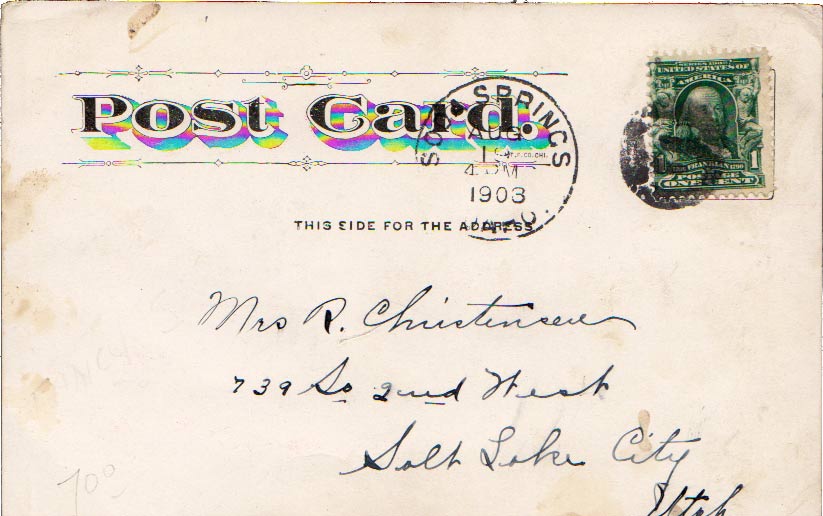 Post Card.
SODA SPRINGS
AUG
4 PM
1903
IDAHO.
SERIES 1902
UNITED STATES OF
AMERICA
FRANKLIN
1 1
POSTAGE
ONE CENT
THIS SIDE FOR THE ADDRESS
Mrs R. Christensen
739 So 2nd West
Salt Lake City
Utah
700